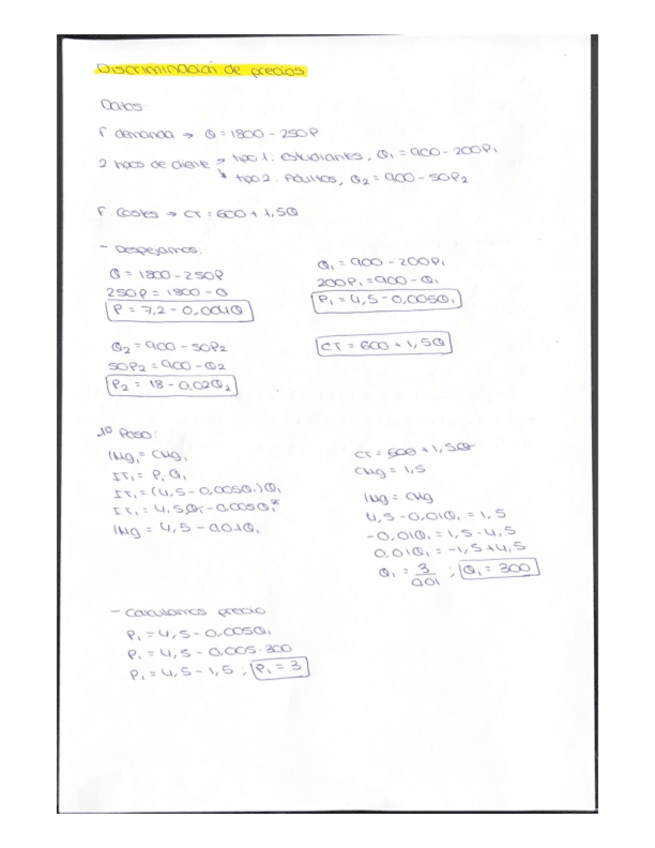 Discriminación de precios
Datos:
F. demanda → Q = 1800 - 250P
2 tipos de cliente → tipo 1: Estudiantes, Q₁ = 900 - 200P₁
↳ tipo 2: Adultos, Q₂ = 900 - 50P₂
F. Costes → CT = 600 + 1,5Q
- Despejamos:
Q = 1800 - 250P
250P = 1800 - Q
P = 7,2 - 0,004Q
Q₁ = 900 - 200P₁
200P₁ = 900 - Q₁
P₁ = 4,5 - 0,005Q₁
Q₂ = 900 - 50P₂
50P₂ = 900 - Q₂
P₂ = 18 - 0,02Q₂
CT = 600 + 1,5Q
1º Paso:
IMg₁ = CMg₁
IT₁ = P₁ Q₁
IT₁ = (4,5 - 0,005Q₁)Q₁
IT₁ = 4,5Q₁ - 0,005Q₁²
IMg = 4,5 - 0,01Q₁
CT = 600 + 1,5Q
CMg = 1,5
IMg = CMg
4,5 - 0,01Q₁ = 1,5
-0,01Q₁ = 1,5 - 4,5
0,01Q₁ = -1,5 + 4,5
Q₁ = 3/0,01 ; Q₁ = 300
- Calculamos precio
P₁ = 4,5 - 0,005Q₁
P₁ = 4,5 - 0,005·300
P₁ = 4,5 - 1,5 ; P₁ = 3